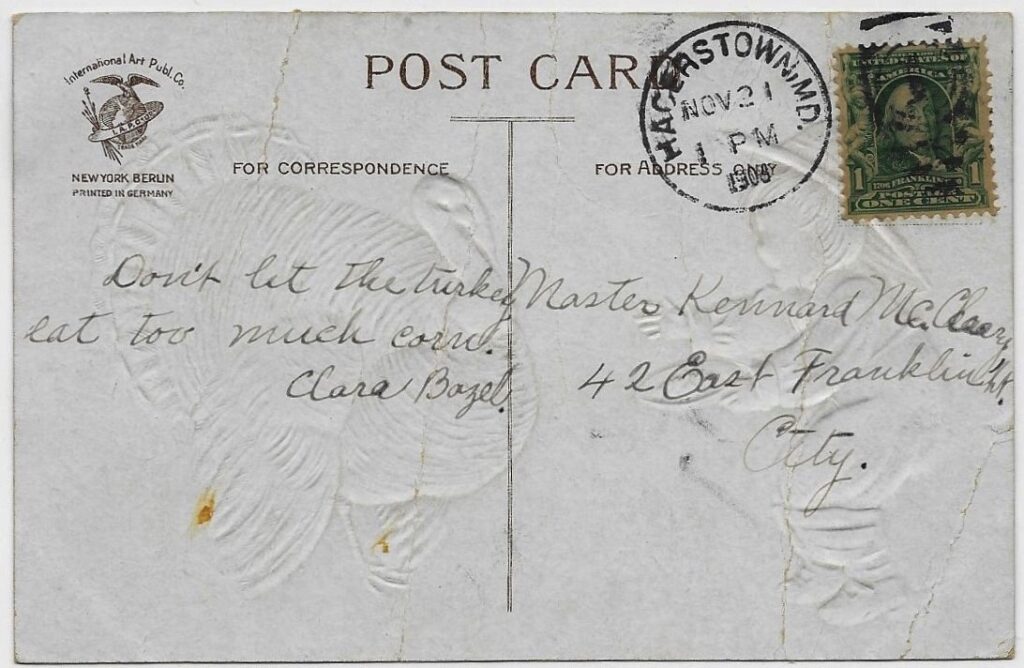 International Art Publ. Co.
NEW YORK BERLIN
PRINTED IN GERMANY
POST CARD
FOR CORRESPONDENCE
FOR ADDRESS ONLY
HAGERSTOWN, MD.
NOV 21
1 PM
1908
UNITED STATES OF
AMERICA
1 FRANKLIN 1
POSTAGE
ONE CENT
Don't let the turkey
eat too much corn.
Clara Bazel.
Master Kennard McCleary
42 East Franklin St.
City.